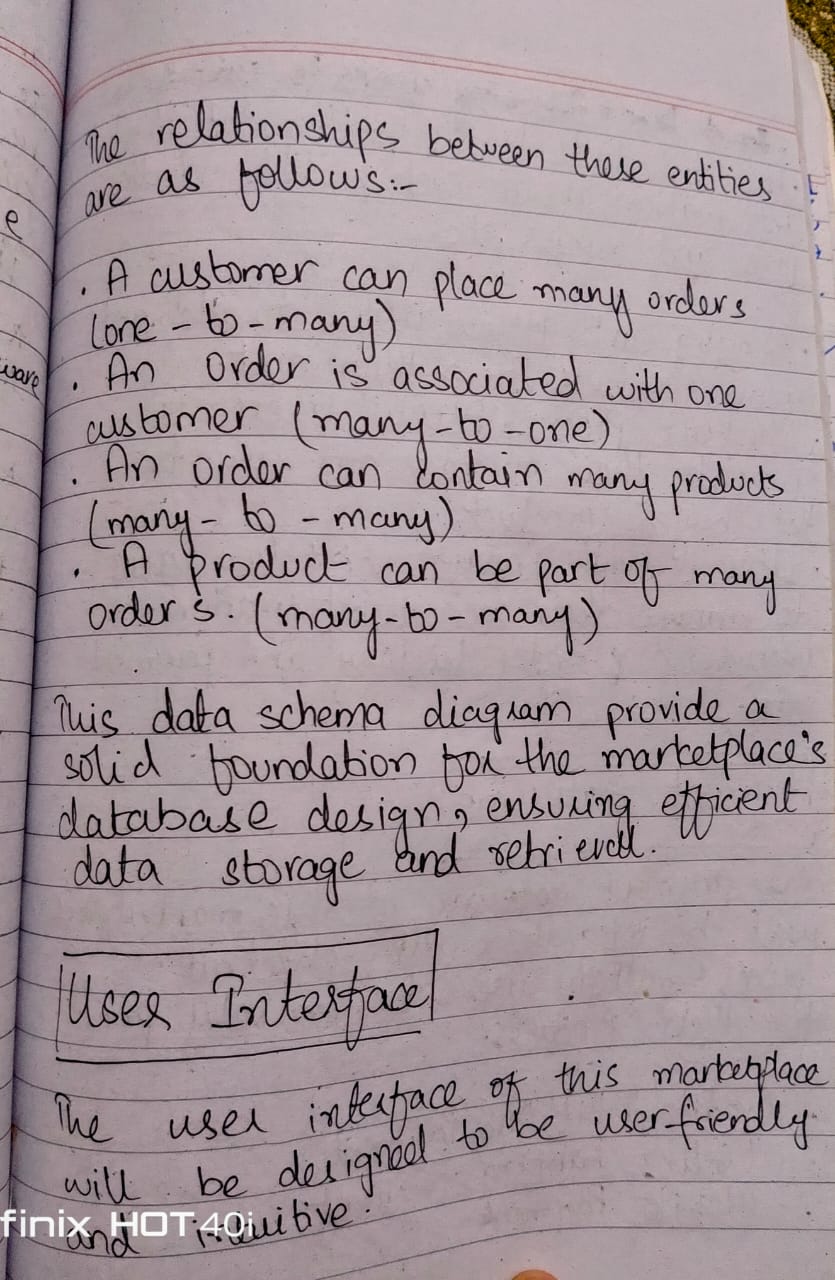 The relationships between these entities
are as follows:-
. A customer can place many orders
(one-to-many)
. An order is associated with one
customer (many-to-one)
. An order can contain many products
(many-to-many)
. A product can be part of many
orders. (many-to-many)
This data schema diagram provide a
solid foundation for the marketplace's
database design, ensuring efficient
data storage and retrieval.
User Interface
The user interface of this marketplace
will be designed to be user-friendly
and intuitive.
e
ware
finix HOT 40i